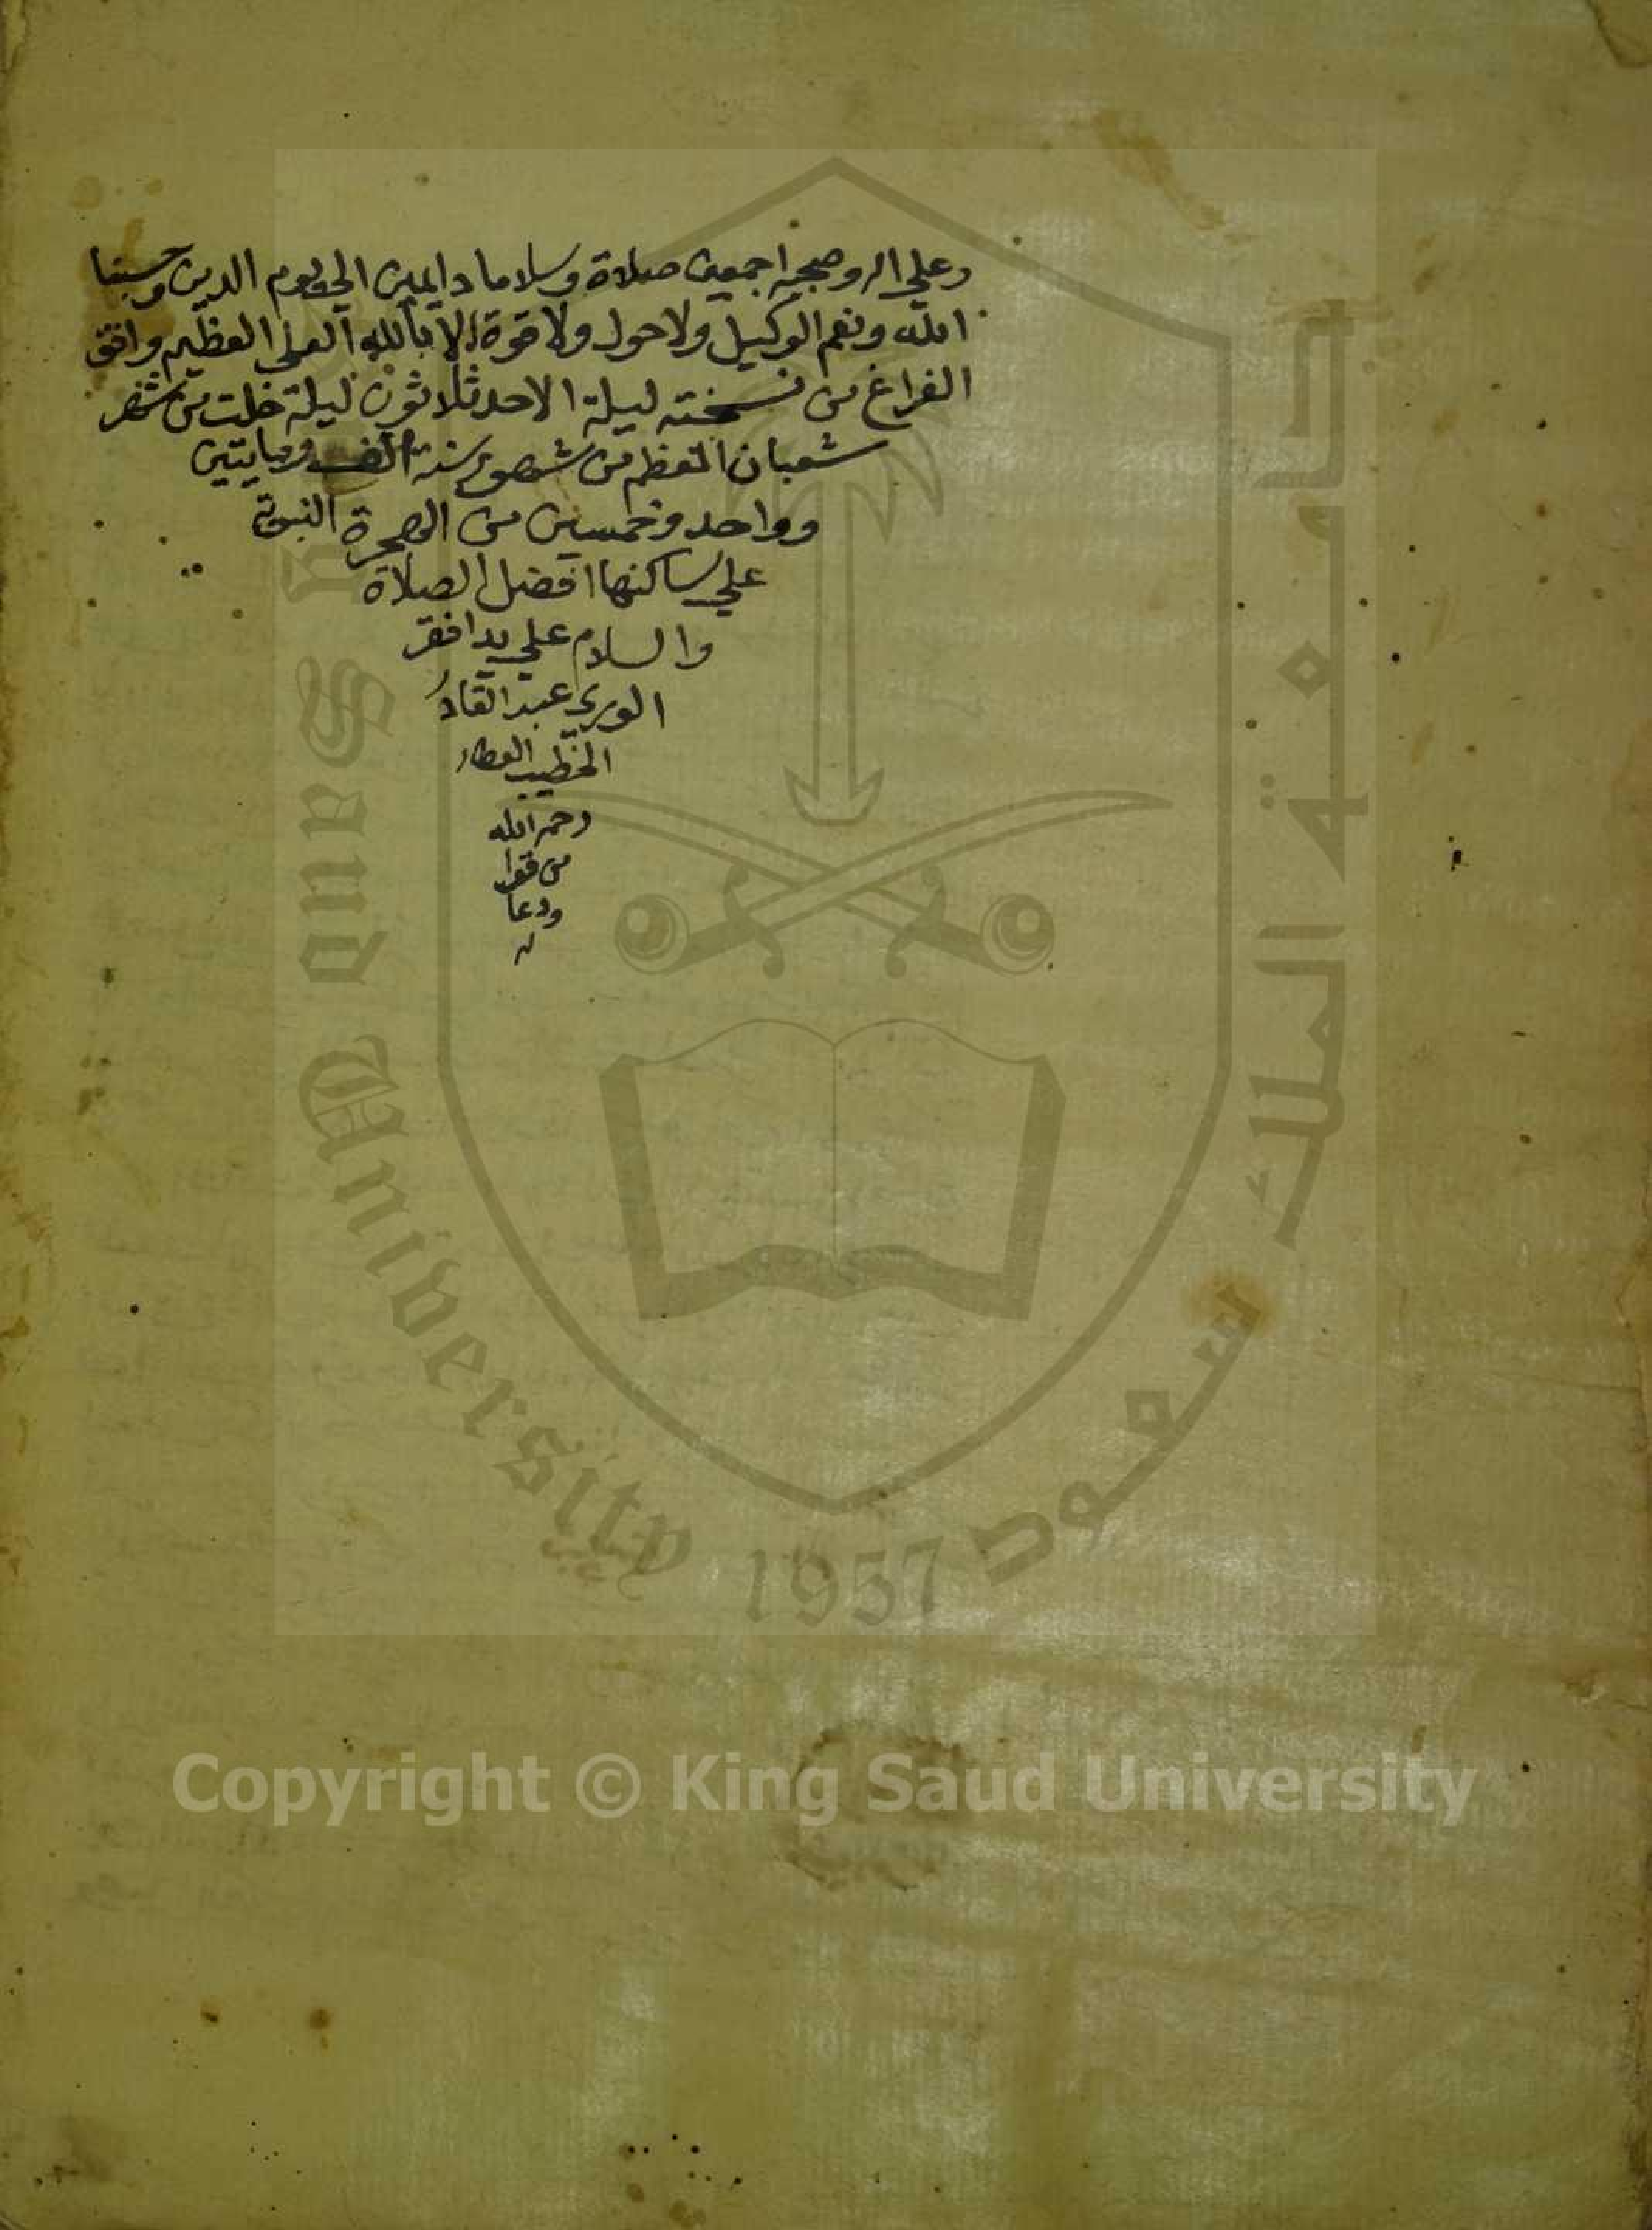 وعلي اله وصحبه اجمعين صلاة وسلاما دايمين الي يوم الدين وحسبنا
الله ونعم الوكيل ولا حول ولا قوة الا بالله العلي العظيم وافق
الفراغ من نسخته ليلة الاحد ثلاثون ليلة خلت من شهر
شعبان المعظم من شهور سنة الف ومايتين
وواحد وخمسين من الهجرة النبوية
علي ساكنها افضل الصلاة
والسلام علي يد افقر
الوري عبد القادر
الخطيب العطار
رحم الله
من قرا
ودعا
له
جامعة الملك سعود
King Saud University
1957
Copyright © King Saud University